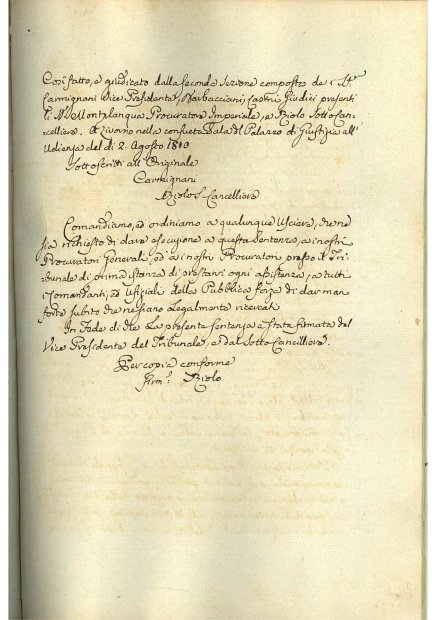 Così fatto, e giudicato dalla Seconda Sezione composta de i SS.ri
Carmignani Vice Presidente, Barbacciani, Castri Giudici presenti
il Montalanqua Procuratore Imperiale, e Riolo Sotto Can-
celliere. A Livorno nella consueta Sala del Palazzo di Giustizia all'
Udienza del dì 2. Agosto 1810
Sottoscritti all'Originale
Carmignani
Riolo S. Cancelliere
Comandiamo, ed ordiniamo a qualunque Usciere, che ne
sia richiesto di dare esecuzione a questa Sentenza, a i nostri
Procuratori Generale, ed a i nostri Procuratori presso il Tri-
bunale di prima istanza di prestarvi ogni assistenza, a tutti
i Comandanti, ed Ufiziali della Pubblica forza di dar man
forte subito che ne siano legalmente ricercati
In Fede di che La presente Sentenza è stata firmata dal
Vice Presidente del Tribunale, e dal Sotto Cancelliere.
Per copia conforme
firm.º Riolo